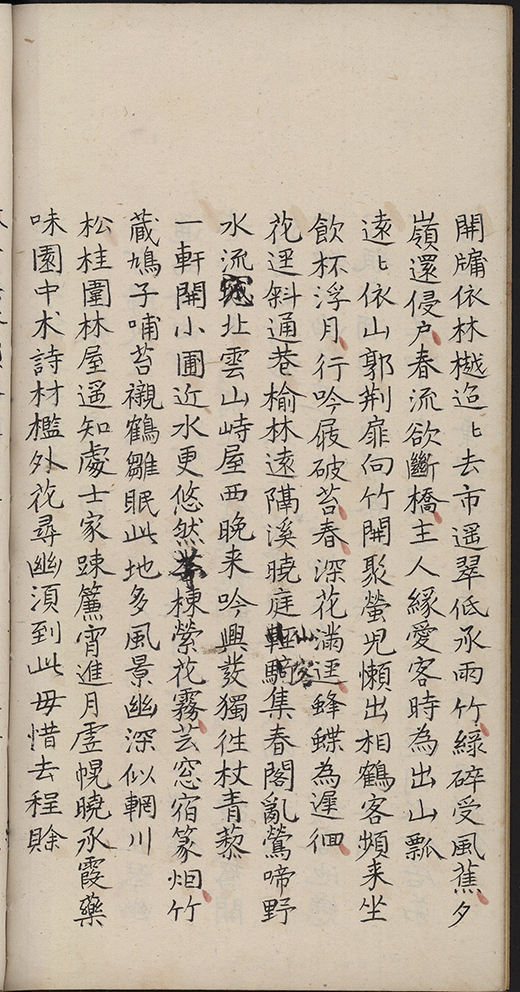 開牗依林樾迢〻去市遥翠低承雨竹緑碎受風蕉夕
嶺還侵户春流欲斷橋主人緣愛客時為出山瓢
遠〻依山郭荆扉向竹開聚螢児懶出相鶴客頻来坐
飲杯浮月行吟屐破苔春深花滿逕蜂蝶為遲徊
花逕斜通巷榆林遠隔溪曉庭仙客集春閣亂鶯啼野
水流北雲山峙屋西晚来吟興發獨徃杖青藜
一軒開小圃近水更悠然棟縈花霧芸窓宿篆烟竹
蔵鳩子哺苔襯鶴雛眠此地多風景幽深似輞川
松桂圍林屋遥知處士家踈簾宵進月虛幌曉承霞藥
味園中术詩材檻外花尋幽湏到此毋惜去程賖